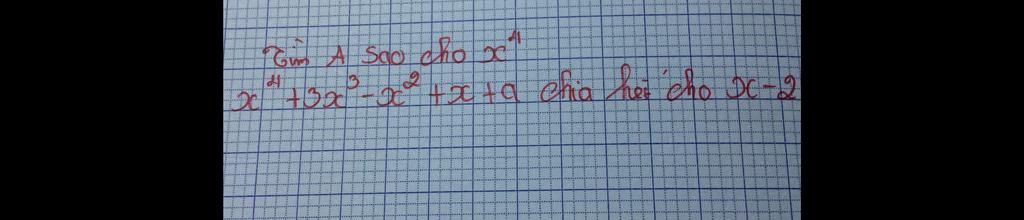 Tìm A sao cho x⁴
x⁴ + 3x³ - x² + x + a chia hết cho x - 2